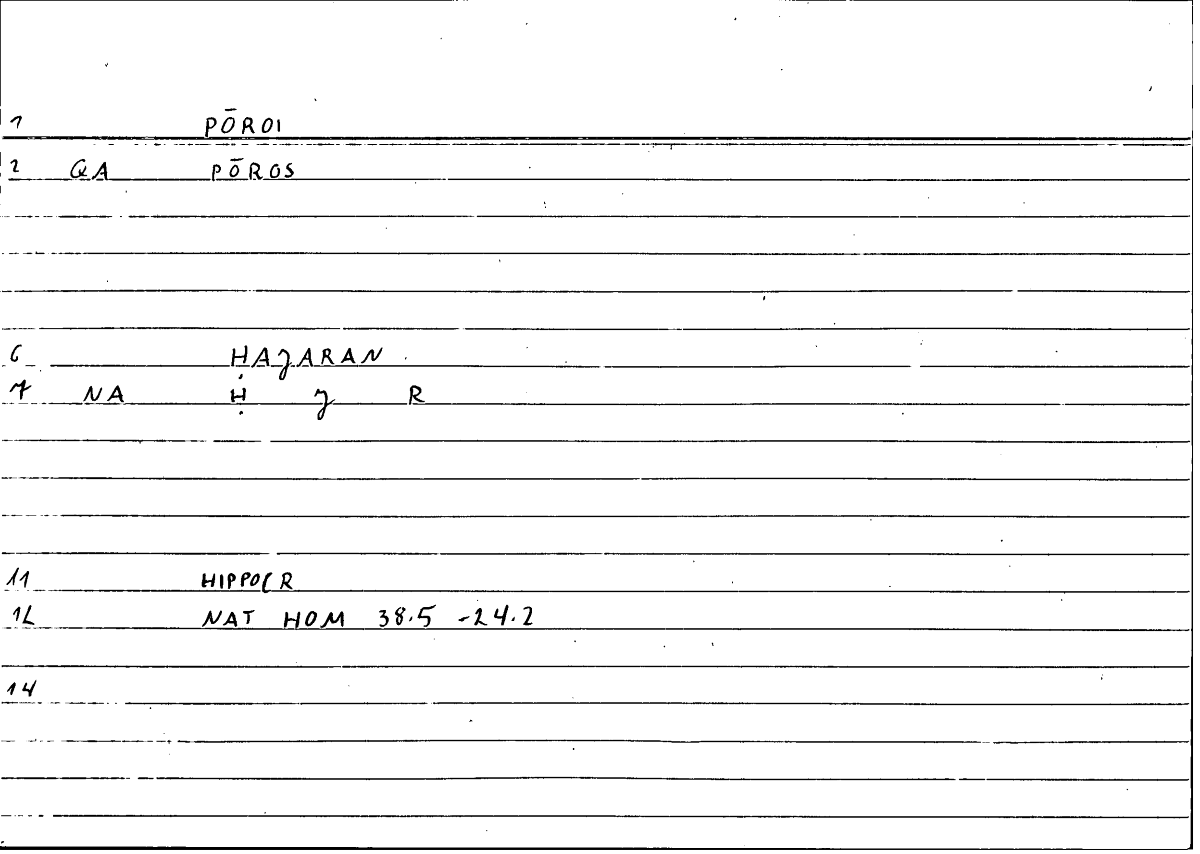 1 PŌROI
2 QA PŌROS
6 ḤAJARAN
7 NA Ḥ J R
11 HIPPOCR
12 NAT HOM 38.5 -24.2
14